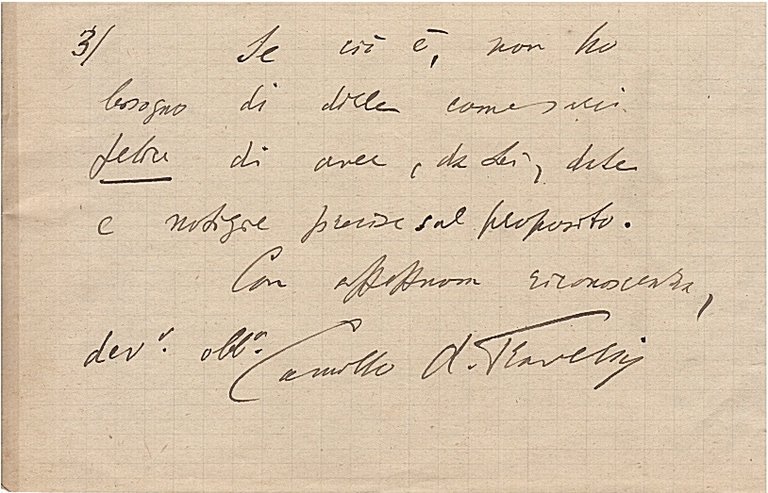 3/ Se ciò è, non ho
bisogno di dirLe come sarei
felice di avere, da Lei, date
e notizie precise sul proposito.
Con affettuosa riconoscenza,
dev.º obb.º Camillo d.